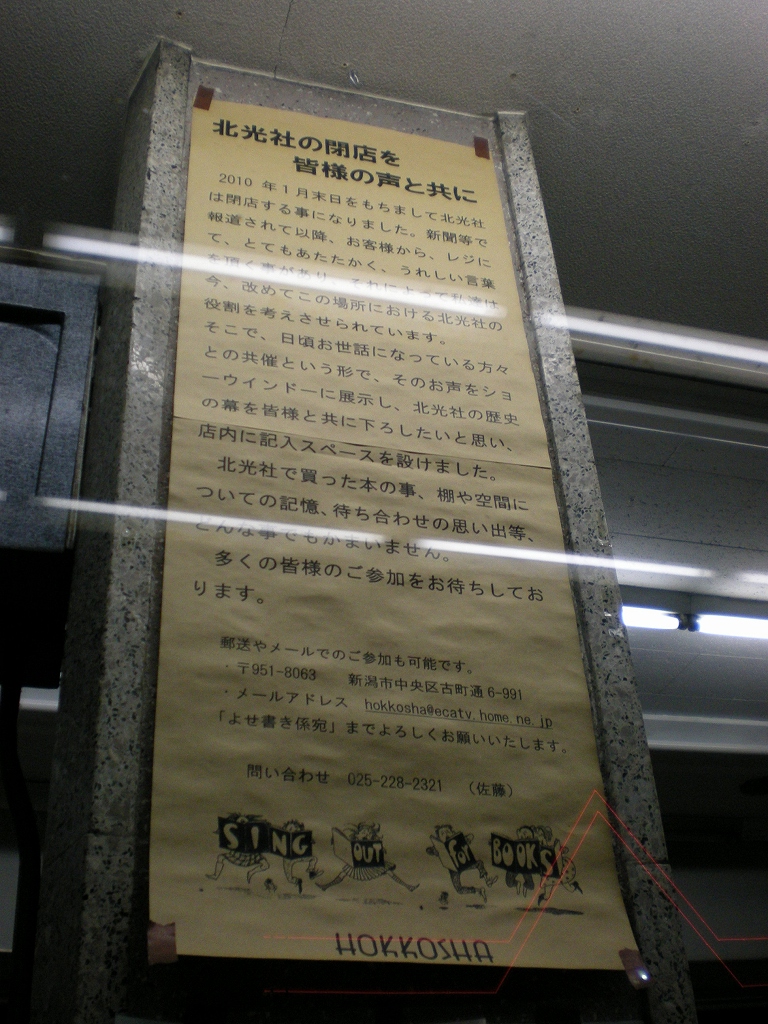 北光社の閉店を
皆様の声と共に
2010 年1月末日をもちまして北光社
は閉店する事になりました。新聞等で
報道されて以降、お客様から、レジに
て、とてもあたたかく、うれしい言葉
を頂く事があり、それによって私達は
今、改めてこの場所における北光社の
役割を考えさせられています。
そこで、日頃お世話になっている方々
との共催という形で、そのお声をショ
ーウインドーに展示し、北光社の歴史
の幕を皆様と共に下ろしたいと思い、
店内に記入スペースを設けました。
北光社で買った本の事、棚や空間に
ついての記憶、待ち合わせの思い出等、
どんな事でもかまいません。
多くの皆様のご参加をお待ちしてお
ります。
郵送やメールでのご参加も可能です。
・〒951-8063 新潟市中央区古町通 6-991
・メールアドレス hokkosha@ecatv.home.ne.jp
「よせ書き係宛」までよろしくお願いいたします。
問い合わせ 025-228-2321 （佐藤）
SING OUT FOR BOOKS
HOKKOSHA